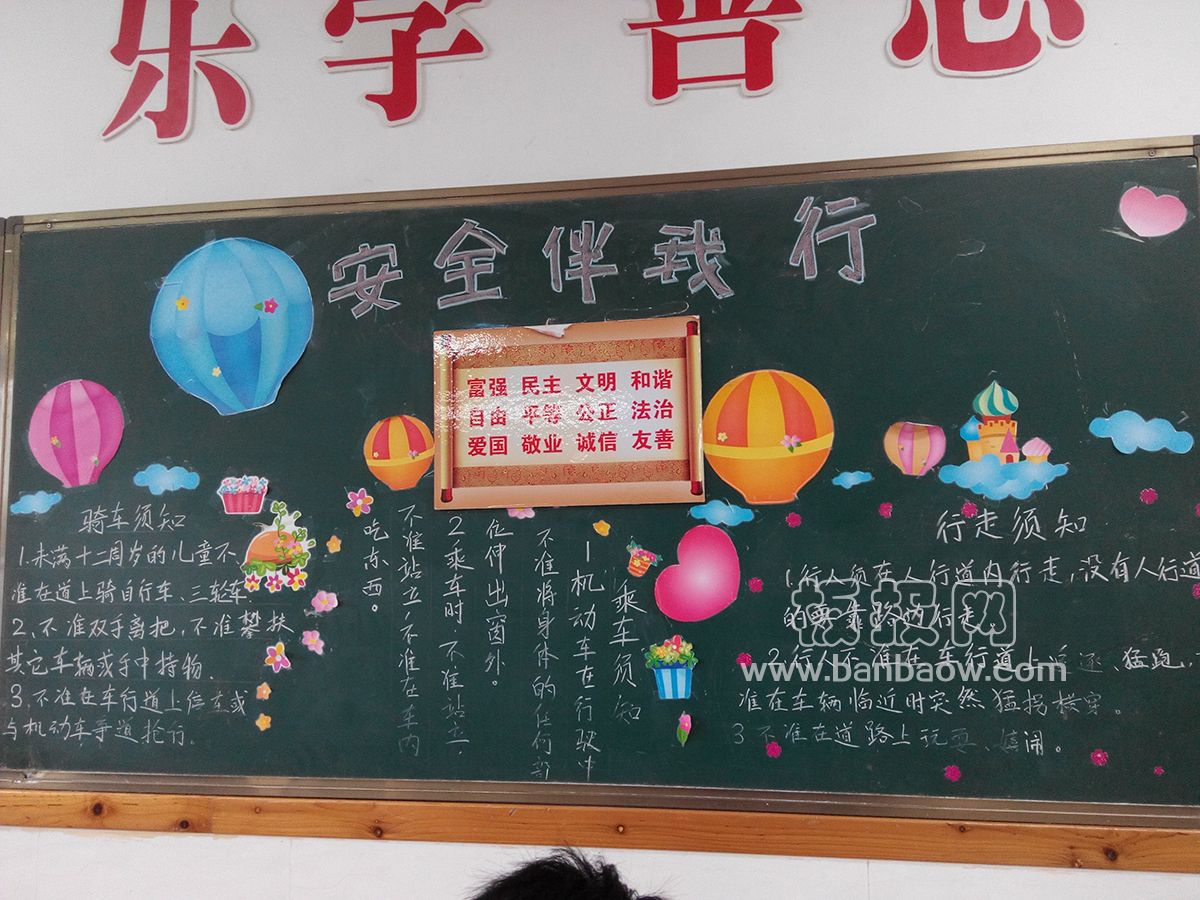 乐学 善思
安全伴我行
富强 民主 文明 和谐
自由 平等 公正 法治
爱国 敬业 诚信 友善
骑车须知
1.未满十二周岁的儿童不
准在道上骑自行车、三轮车
2、不准双手离把,不准攀扶
其它车辆或手中持物.
3、不准在车行道上停车或
与机动车争道抢行.
乘车须知
1机动车在行驶中
不准将身体的任何部
位伸出窗外。
2乘车时 不准站立
不准站立 不准在车内
吃东西。
行走须知
1.行人须在人行道内行走,没有人行道
的要靠路 行走,
2行 不准在车行道上 猛跑,
准在车辆临近时突然猛拐横穿。
3不准在道路上玩耍、嬉闹。
板报网
www.banbaow.com